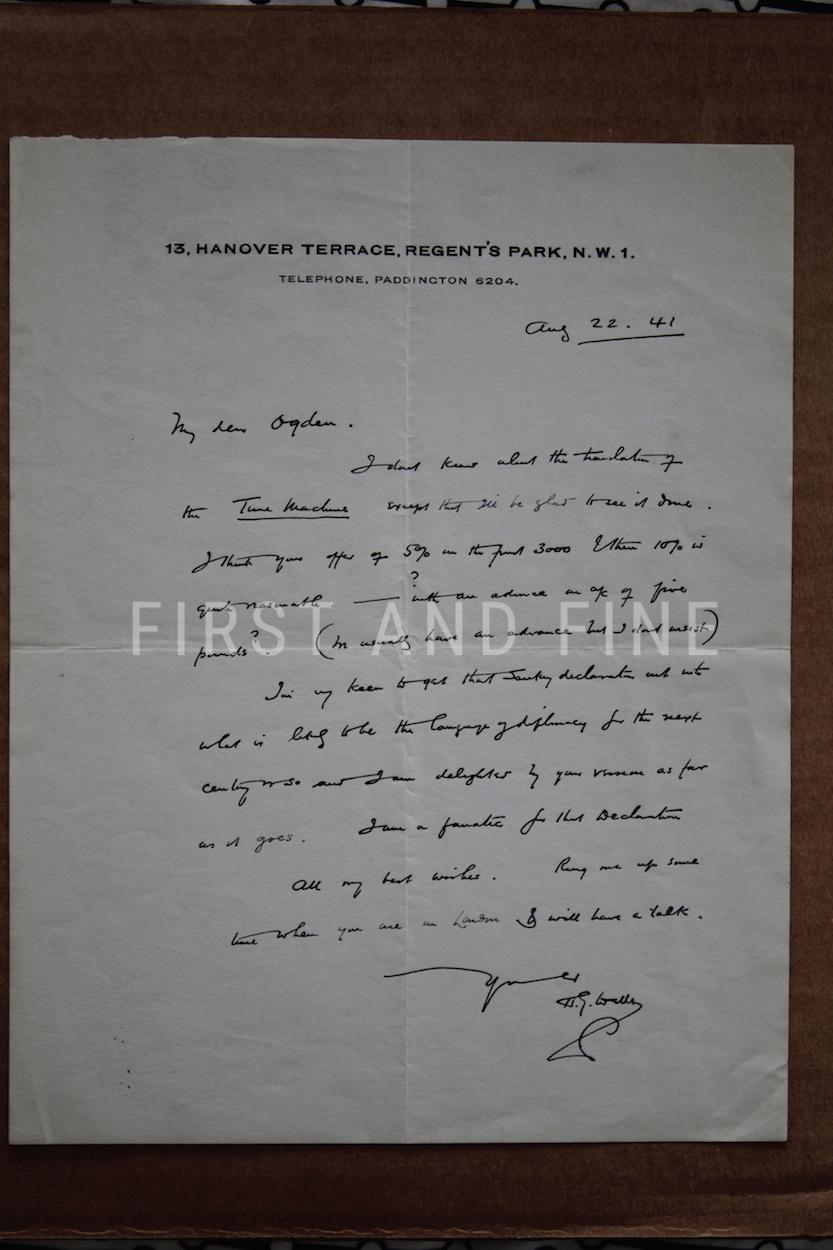 13, HANOVER TERRACE, REGENT'S PARK, N.W.1.
TELEPHONE, PADDINGTON 6204.
Aug 22. 41
My dear Ogden.
I don't know about the translation of
the Time Machine except that I'll be glad to see it done.
I think your offer of 5% on the first 3000 & then 10% is
quite reasonable. — ? with an advance on a/c of five
pounds?. (We usually have an advance but I don't insist)
I'm very keen to get that Sankey declaration out into
what is likely to be the language of diplomacy for the next
century or so and I am delighted by your version as far
as it goes. I am a fanatic for that Declaration
All my best wishes. Ring me up some
time when you are in London & will have a talk.
Yours
H.G. Wells
FIRST AND FINE